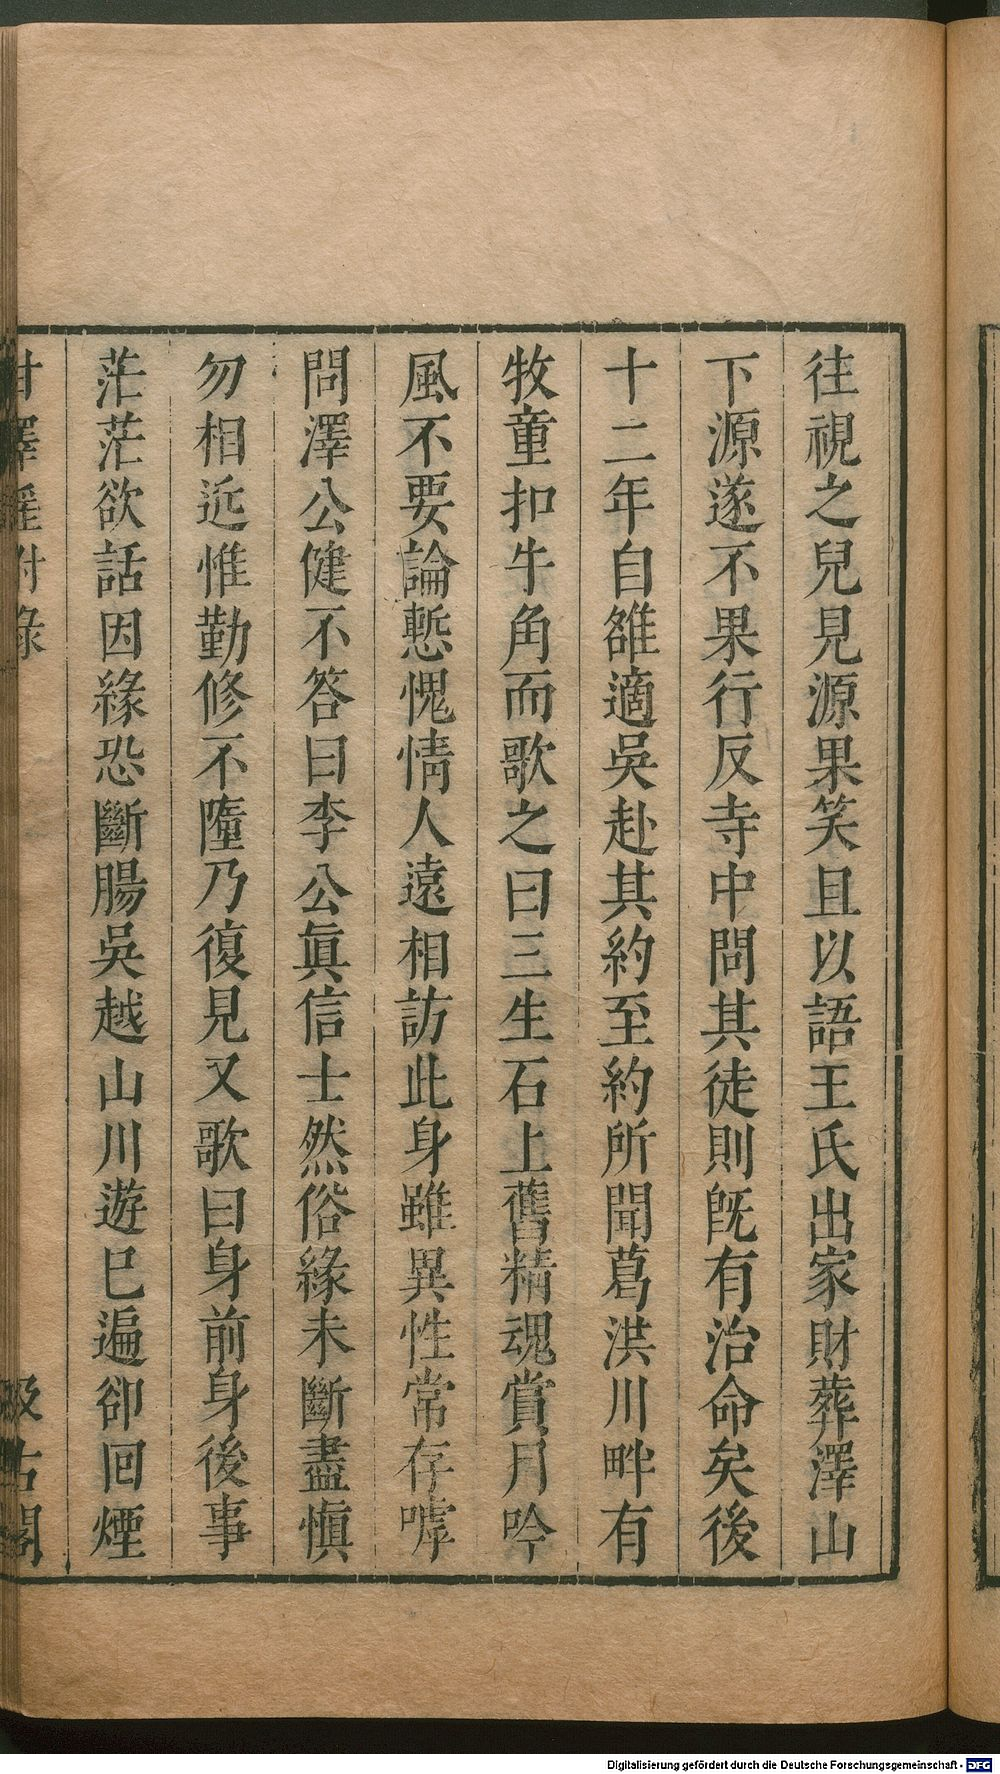 往視之兒見源果笑且以語王氏出家財葬澤山
下源遂不果行反寺中問其徒則旣有治命矣後
十二年自雒適吳赴其約至約所聞葛洪川畔有
牧童扣牛角而歌之曰三生石上舊精魂賞月吟
風不要論慙愧情人遠相訪此身雖異性常存嘑
問澤公健不答曰李公眞信士然俗緣未斷盡愼
勿相近惟勤修不墮乃復見又歌曰身前身後事
茫茫欲話因緣恐斷腸吳越山川遊已遍卻回煙
甘澤謠附錄 汲古閣
Digitalisierung gefördert durch die Deutsche Forschungsgemeinschaft - DFG